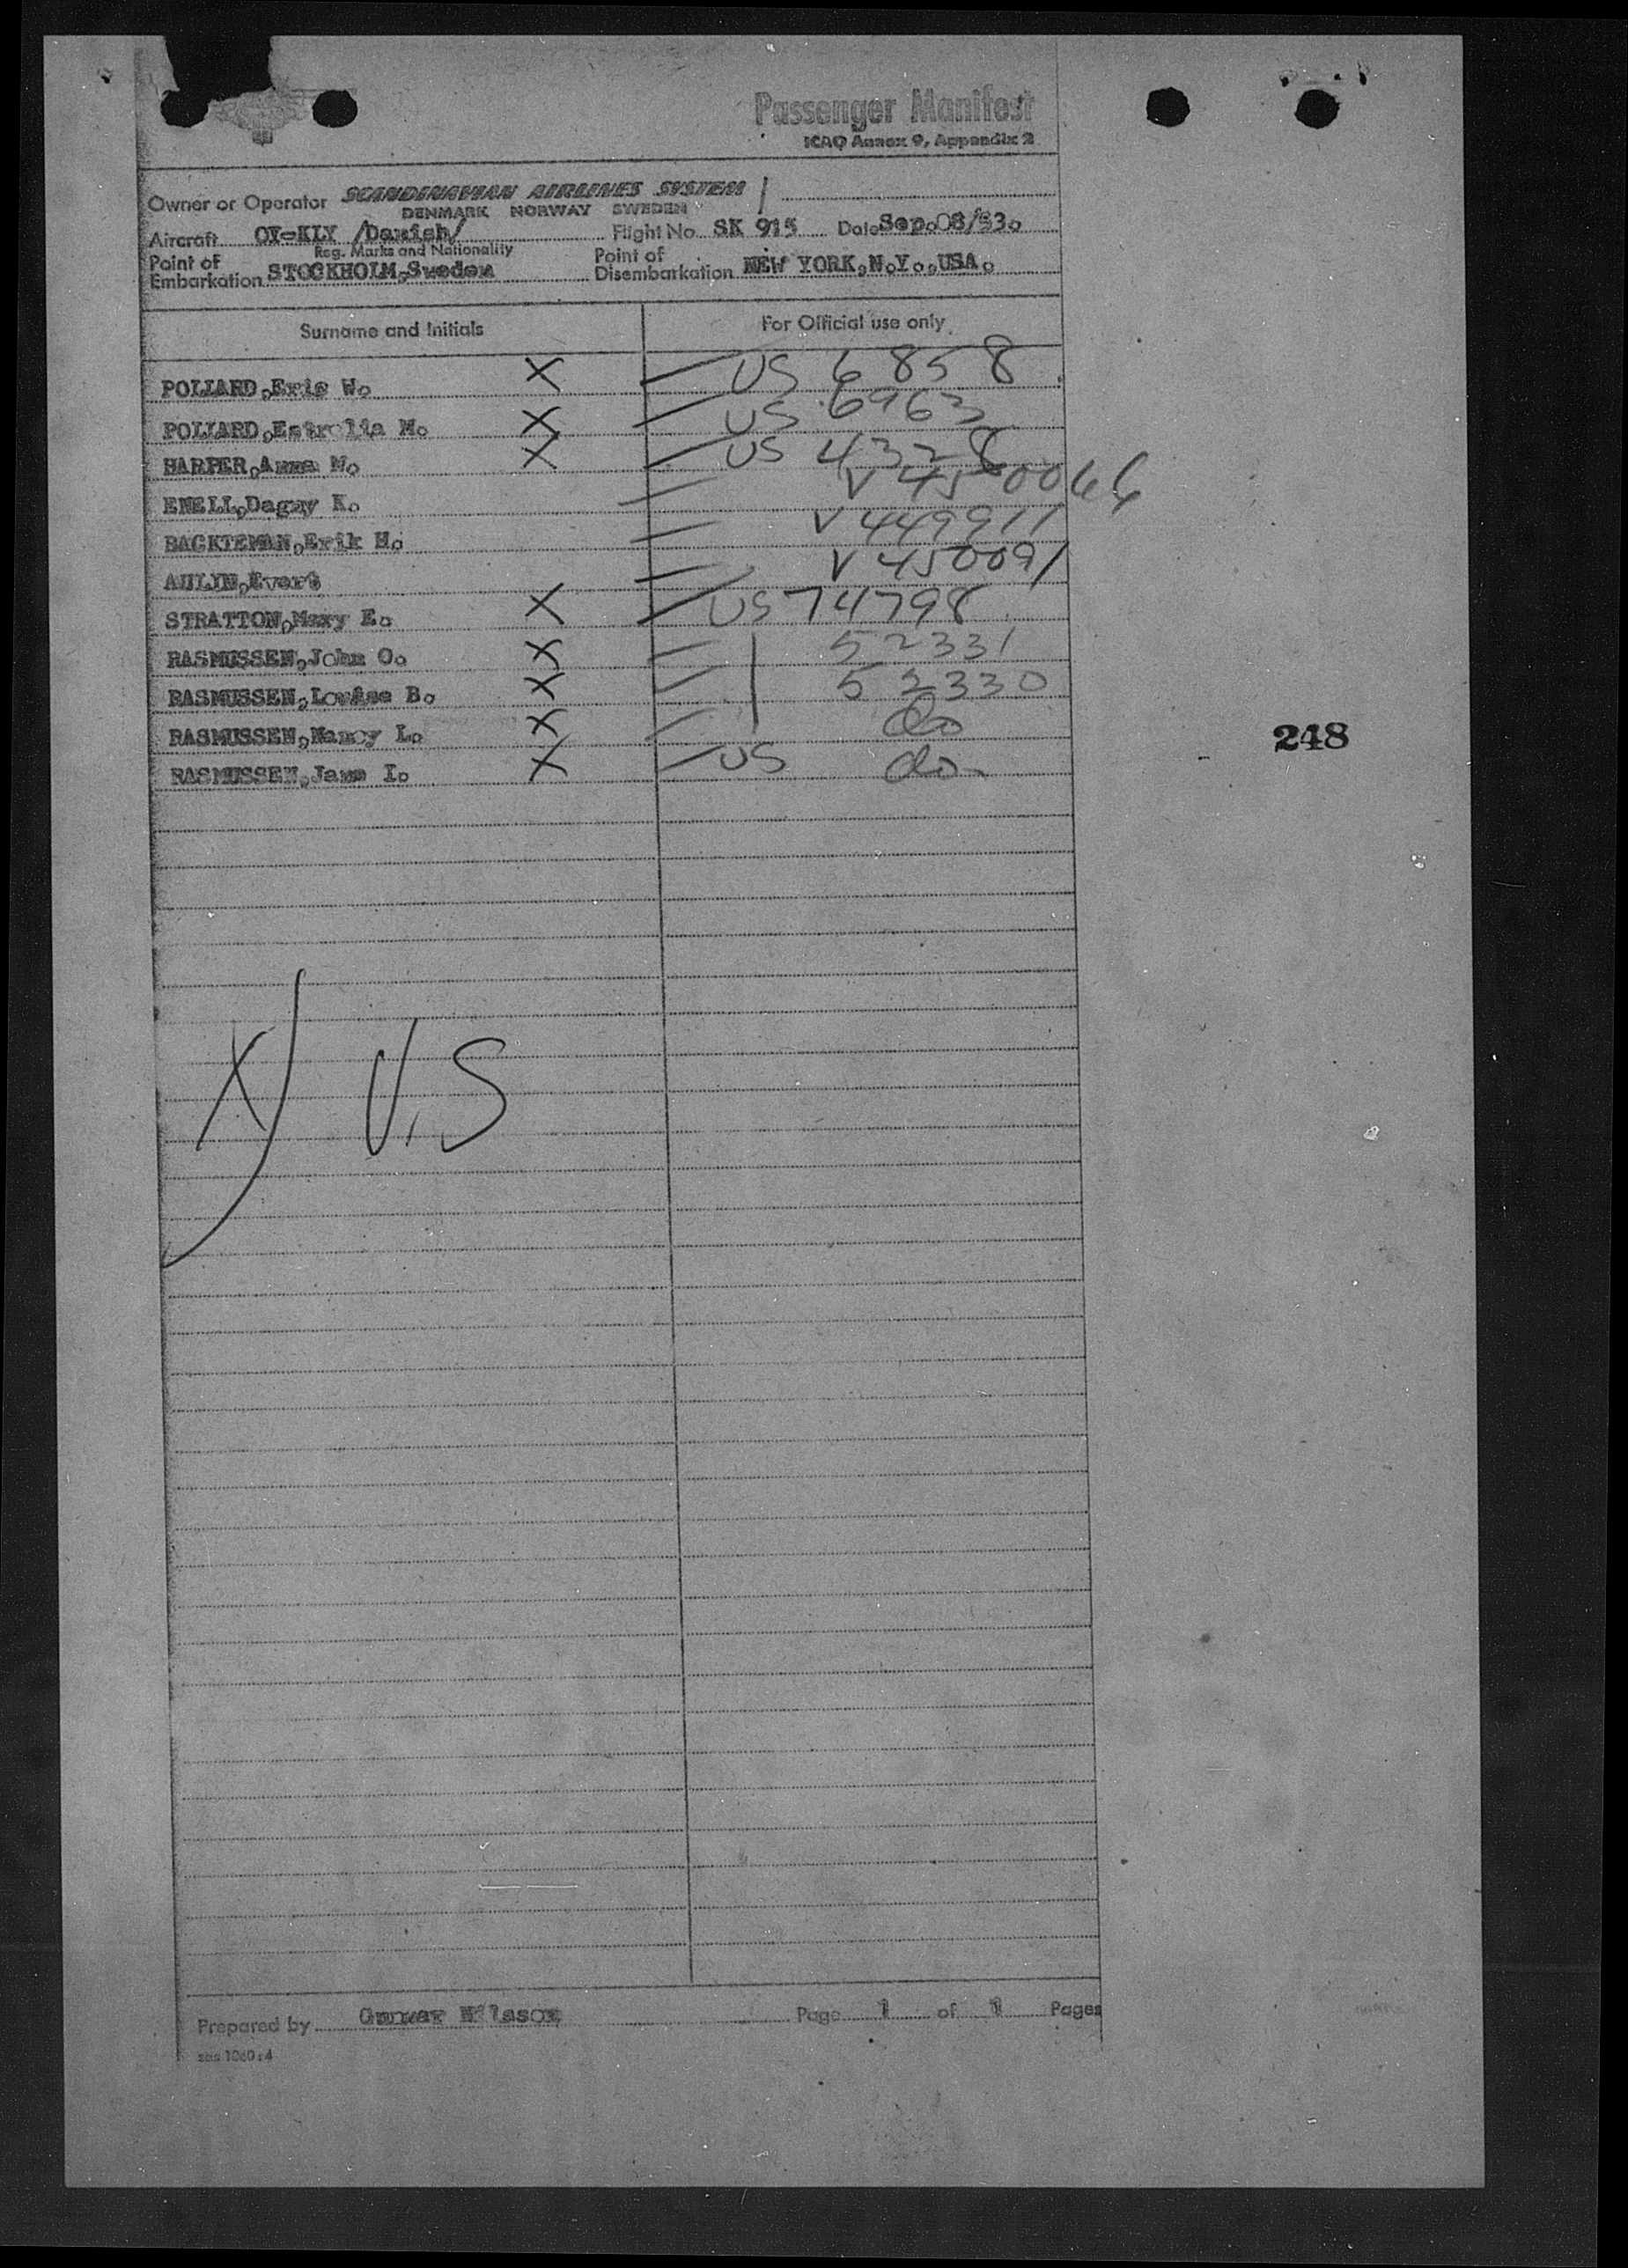 Passenger Manifest
ICAO Annex 9, Appendix 2
Owner or Operator SCANDINAVIAN AIRLINES SYSTEM
DENMARK NORWAY SWEDEN
Aircraft OY-KLY /Danish/ Flight No. SK 915 Date Sep.08/53.
Reg. Marks and Nationality
Point of Embarkation STOCKHOLM,Sweden Point of Disembarkation NEW YORK,N.Y.,USA.
Surname and Initials For Official use only
POLLARD,Eric W. X US 6858
POLLARD,Estrelia M. X US 6963
HARPER,Anna M. X US 4328
ENELL,Dagny K. V 450066
BACKTEMAN,Erik H. V 449911
AULIN,Evert V 450091
STRATTON,Mary E. X US 74798
RASMUSSEN,John O. X 52331
RASMUSSEN,Louise B. X 52330
RASMUSSEN,Nancy L. X do
248
RASMUSSEN,Jane I. X US do
X) U.S
Prepared by Gunnar Nilsson Page 1 of 1 Pages
sas 1060:4